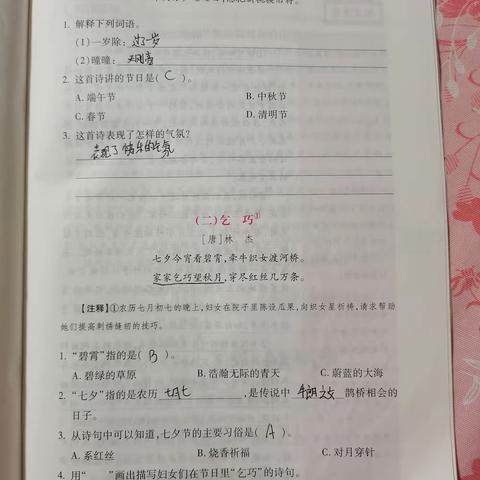 1. 解释下列词语。
(1)一岁除:过了一岁
(2)曈曈:
2. 这首诗讲的节日是( C )。
A. 端午节 B. 中秋节
C. 春节 D. 清明节
3. 这首诗表现了怎样的气氛?
表现了快乐的气氛
(二)乞 巧①
[唐]林 杰
七夕今宵看碧霄,牵牛织女渡河桥。
家家乞巧望秋月,穿尽红丝几万条。
【注释】①农历七月初七的晚上,妇女在院子里陈设瓜果,向织女星祈祷,请求帮助
她们提高刺绣缝纫的技巧。
1. “碧霄”指的是( B )。
A. 碧绿的草原 B. 浩瀚无际的青天 C. 蔚蓝的大海
2. “七夕”指的是农历 七月七 ,是传说中 鹊桥相会的
日子。
3. 从诗句中可以知道,七夕节的主要习俗是( A )。
A. 系红丝 B. 烧香祈福 C. 对月穿针
4. 用“ ”画出描写妇女们在节日里“乞巧”的诗句。